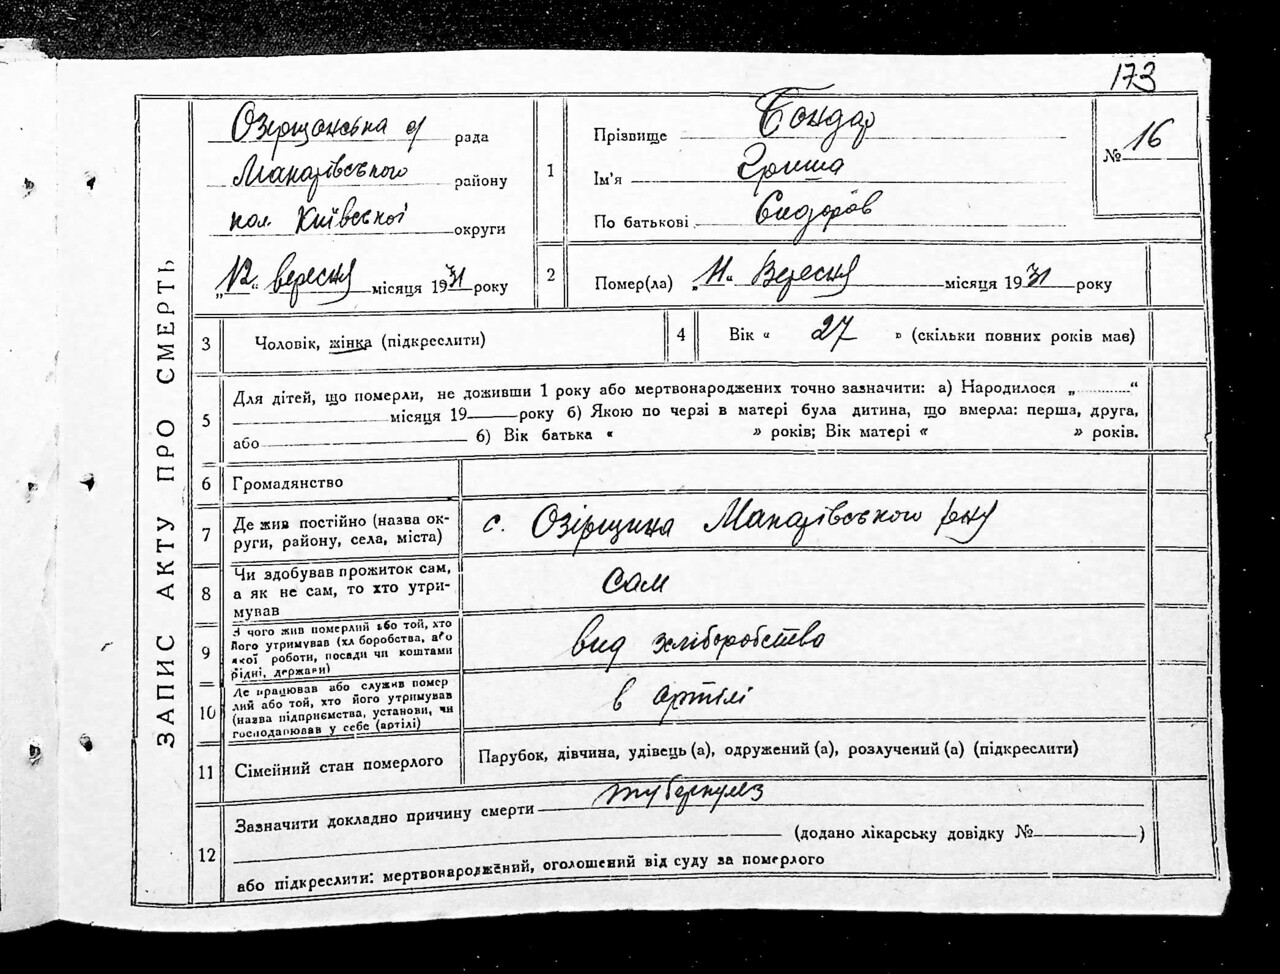 173
ЗАПИС АКТУ ПРО СМЕРТЬ
Озірщанська с/ рада
Макарівського району
кол. Київської округи
„12“ вересня місяця 1931 року
1
Прізвище Бондар
Ім'я Гриша
По батькові Сидорів
№ 16
2
Помер(ла) „11“ Вересня місяця 1931 року
3 Чоловік, жінка (підкреслити)
4 Вік « 27 » (скільки повних років мав)
5
Для дітей, що померли, не доживши 1 року або мертвонароджених точно зазначити: а) Народилося „ “
місяця 19 року б) Якою по черзі в матері була дитина, що вмерла: перша, друга,
або б) Вік батька « » років; Вік матері « » років.
6 Громадянство
7
Де жив постійно (назва ок-
руги, району, села, міста)
с. Озірщина Макарівського р-ну
8
Чи здобував прожиток сам,
а як не сам, то хто утри-
мував
сам
9
З чого жив померлий або той, хто
його утримував (хліборобства, або
якої роботи, посади чи коштами
рідні, держави)
вид хліборобства
10
Де працював або служив помер
лий або той, хто його утримував
(назва підприємства, установи, чи
господарював у себе (артілі)
в артілі
11 Сімейний стан померлого
Парубок, дівчина, удівець (а), одружений (а), розлучений (а) (підкреслити)
12
Зазначити докладно причину смерти туберкульз
(додано лікарську довідку № )
або підкреслити: мертвонароджений, оголошений від суду за померлого